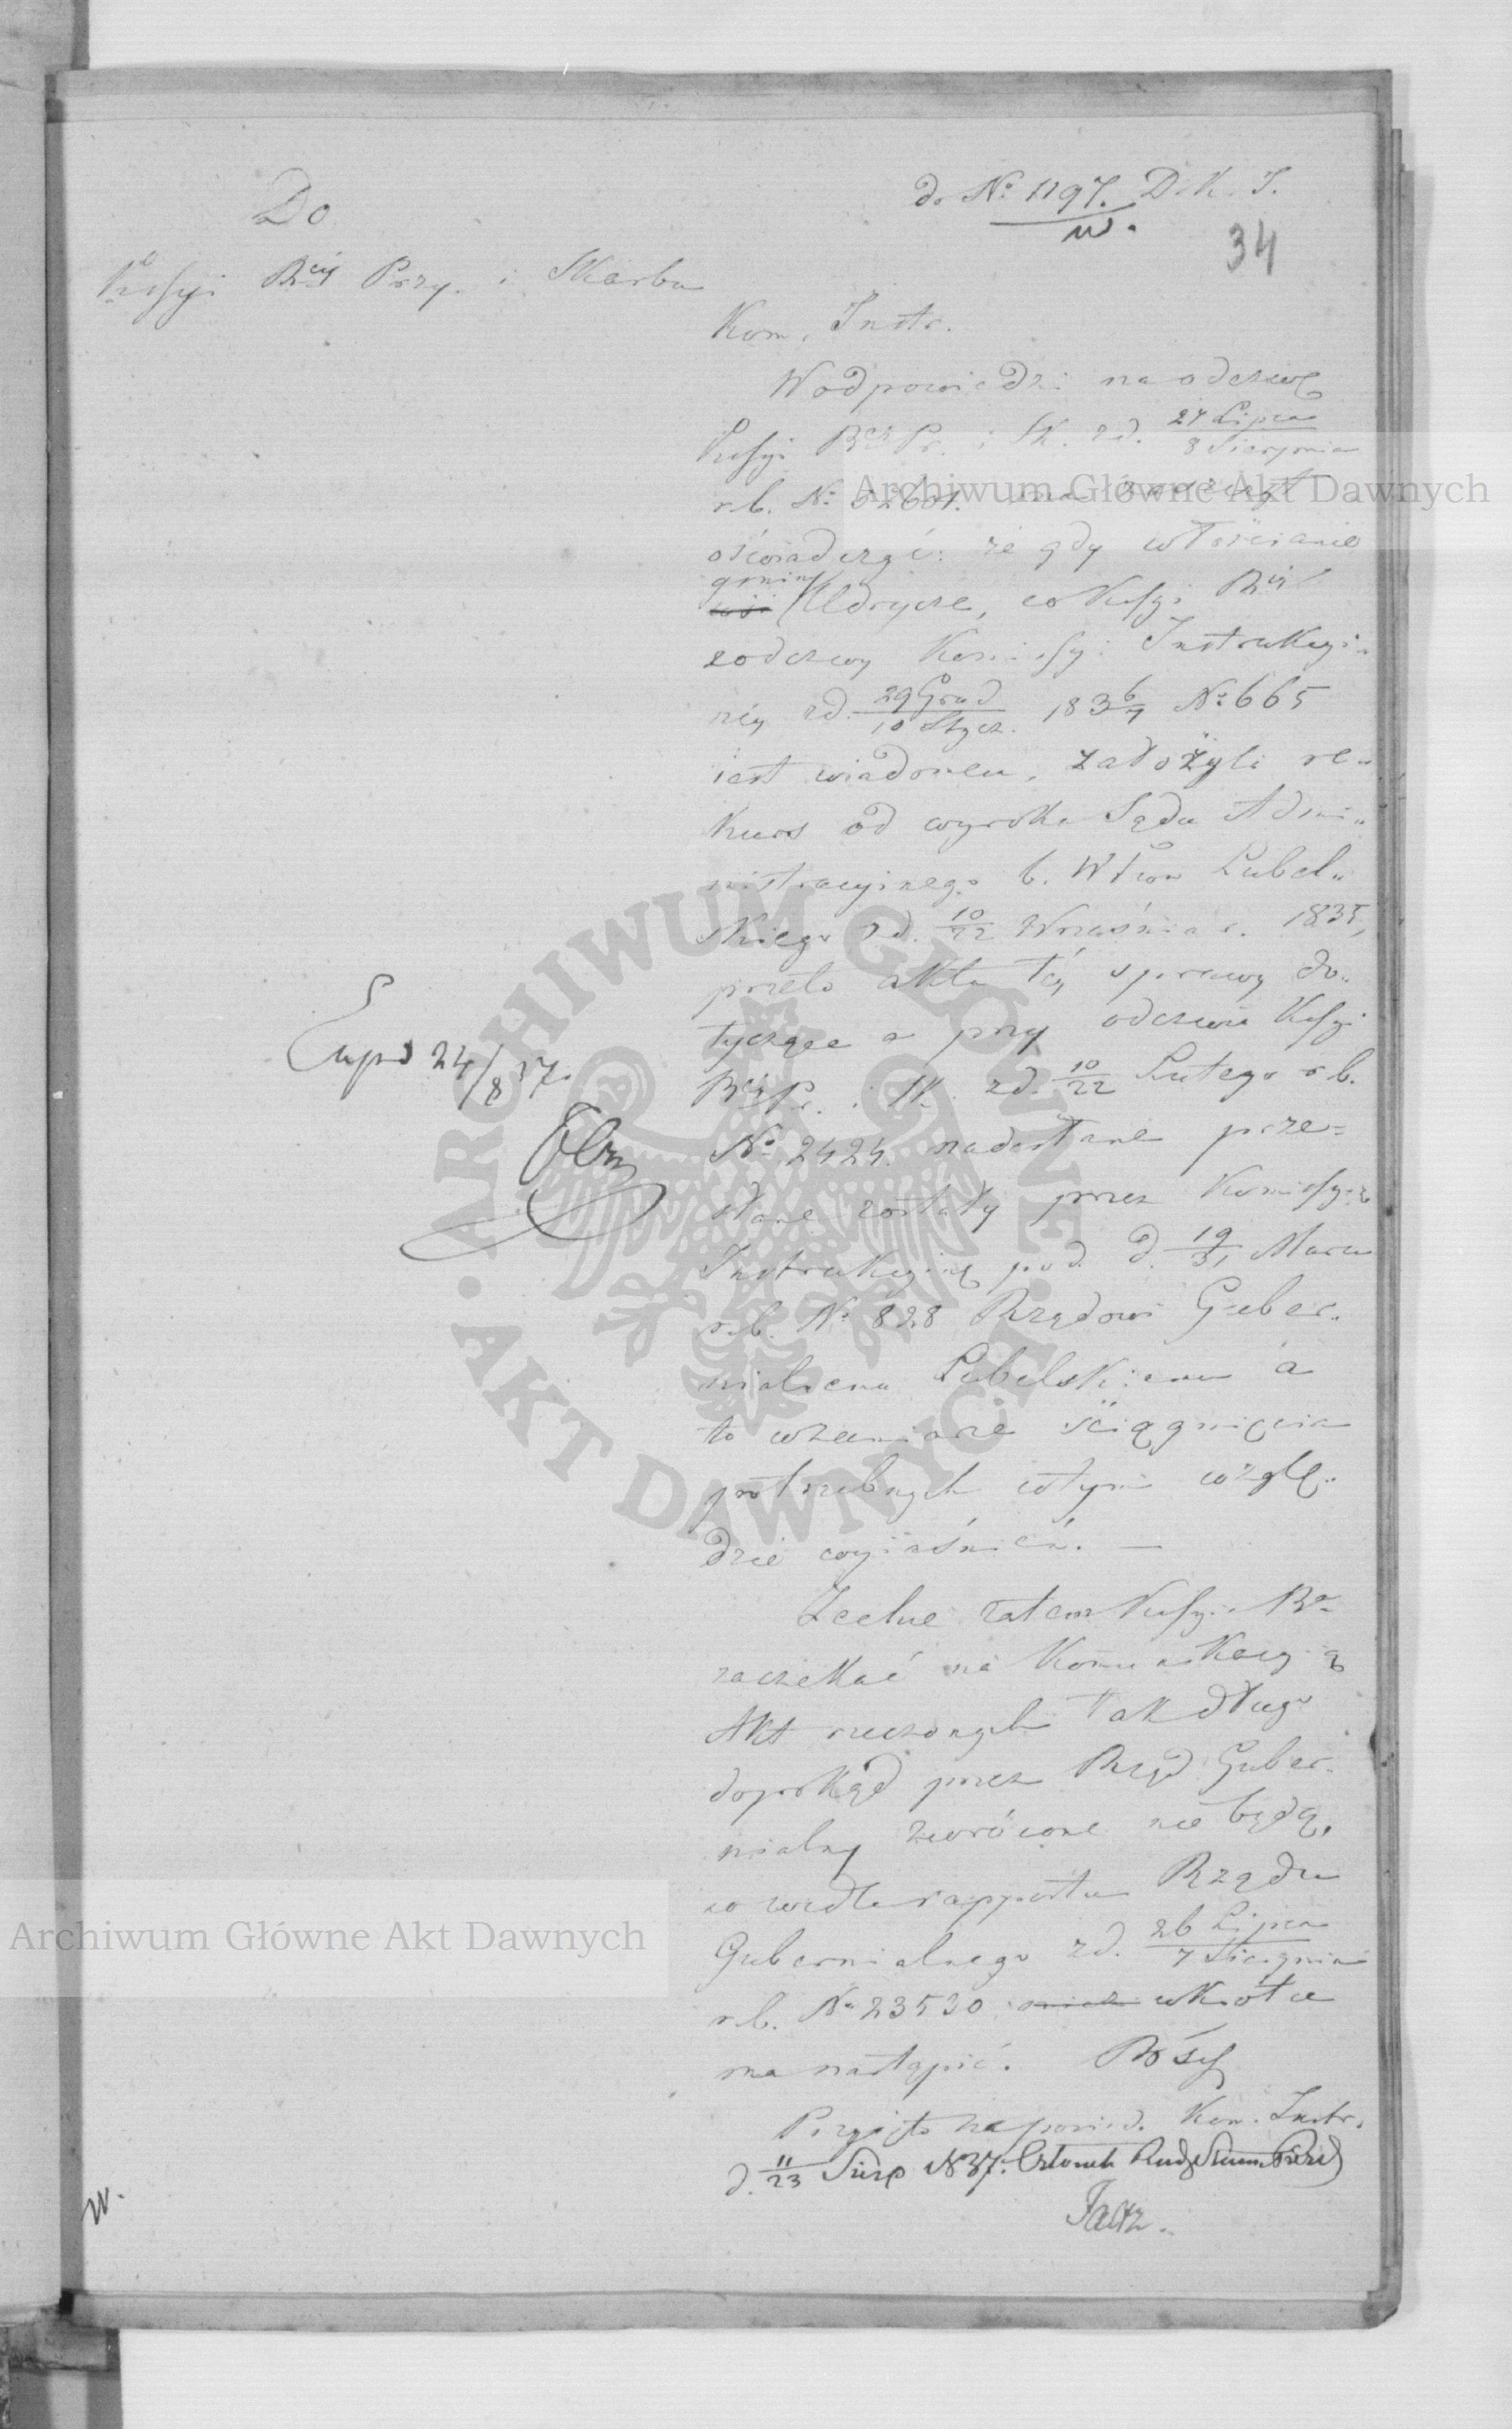 do No 1197. D. K. I.
w.
34
Do
Kssyi Rwéj Przy. i Skarbu
Kom. Instr.
W odpowiedzi na odezwę
Kssyi Rwéj Pr. i Sk. z d. 27 Lipca / 8 Sierpnia
r.b. No ma zaszczyt
oświadczyć: że gdy włościanie
gminy
wsi Udrycze, co Kssyi Rwéj
z odezwy Komissyi Instrukcyi-
néy z d. 29 Grud / 10 Stycz. 1836/7 No 665
iest wiadomem, założyli re-
kurs od wyroku Sądu Admi-
nistracyjnego b. Wztwa Lubel-
skiego z d. 10/22 Września r. 1835,
przeto akta téy sprawy do-
tyczące a przy odezwie Kssyi
Rwéj Pr. i Sk. z d. 10/22 Lutego r.b.
No 2424. nadesłane prze-
słane zostały przez Komissyią
Instrukcyiną pod d. 19/31 Marca
r.b. No 828 Rządowi Guber-
nialnemu Lubelskiemu a
to w zamiarze ściągnięcia
potrzebnych w tym wzglę-
dzie wyiaśnień. —
Zechce zatem Kssyia Rwa
zaczekać na Komunikacyią
Akt rzeczonych tak długo
dopokąd przez Rząd Guber-
nialny zwrócone nie będą,
co wedle rapportu Rządu
Gubernialnego z d. 26 Lipca / 7 Sierpnia
r.b. No 23530 wkrótce
ma nastąpić.
Exped 24/8 37.
Przyięto na posied. Kom. Instr.
d. 11/23 Sierp 1837. Członek
w.
Archiwum Główne Akt Dawnych
Archiwum Główne Akt Dawnych
ARCHIWUM GŁÓWNE · AKT DAWNYCH ·